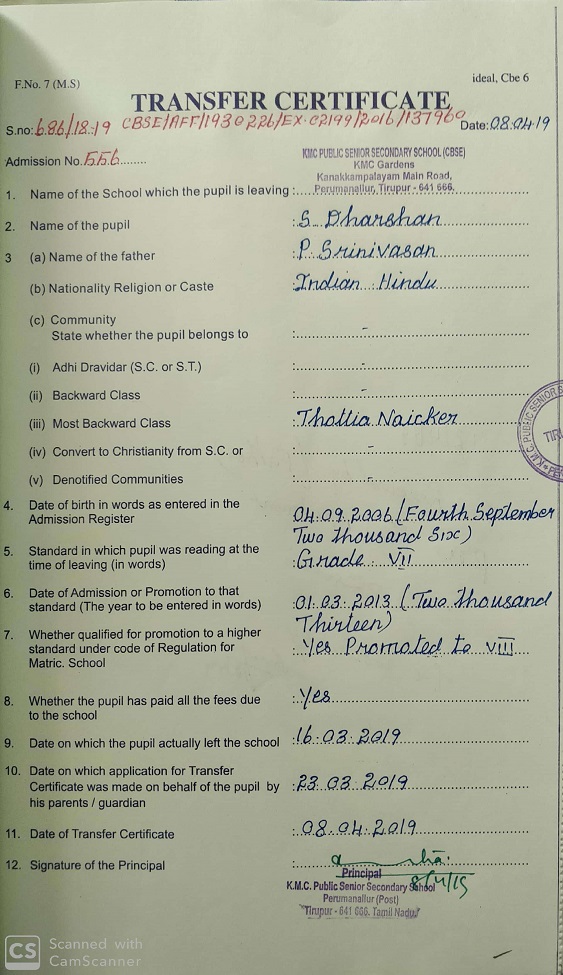 F.No. 7 (M.S)
ideal, Cbe 6
TRANSFER CERTIFICATE
S.no: 686/18-19 CBSE/AFF/1930226/EX-02199/2016/137960 Date: 08.04.19
Admission No. 556
KMC PUBLIC SENIOR SECONDARY SCHOOL (CBSE)
KMC Gardens
Kanakkampalayam Main Road,
1. Name of the School which the pupil is leaving : Perumanallur, Tirupur - 641 666.
2. Name of the pupil : S. Dharshan
3 (a) Name of the father : P. Srinivasan
(b) Nationality Religion or Caste : Indian Hindu
(c) Community
State whether the pupil belongs to : -
(i) Adhi Dravidar (S.C. or S.T.) : -
(ii) Backward Class : -
(iii) Most Backward Class : Thottia Naicker
(iv) Convert to Christianity from S.C. or : -
(v) Denotified Communities : -
4. Date of birth in words as entered in the
Admission Register 04.09.2006 (Fourth September
Two thousand Six)
5. Standard in which pupil was reading at the
time of leaving (in words) : Grade VII
6. Date of Admission or Promotion to that
standard (The year to be entered in words) : 01.03.2013 (Two thousand
Thirteen)
7. Whether qualified for promotion to a higher
standard under code of Regulation for : Yes Promoted to VIII
Matric. School
8. Whether the pupil has paid all the fees due : Yes
to the school
9. Date on which the pupil actually left the school : 16.03.2019
10. Date on which application for Transfer
Certificate was made on behalf of the pupil by : 23.03.2019
his parents / guardian
11. Date of Transfer Certificate : 08.04.2019
12. Signature of the Principal :
Principal
K.M.C. Public Senior Secondary School
Perumanallur (Post)
Tirupur - 641 666. Tamil Nadu
K.M.C. PUBLIC SENIOR
CS Scanned with
CamScanner